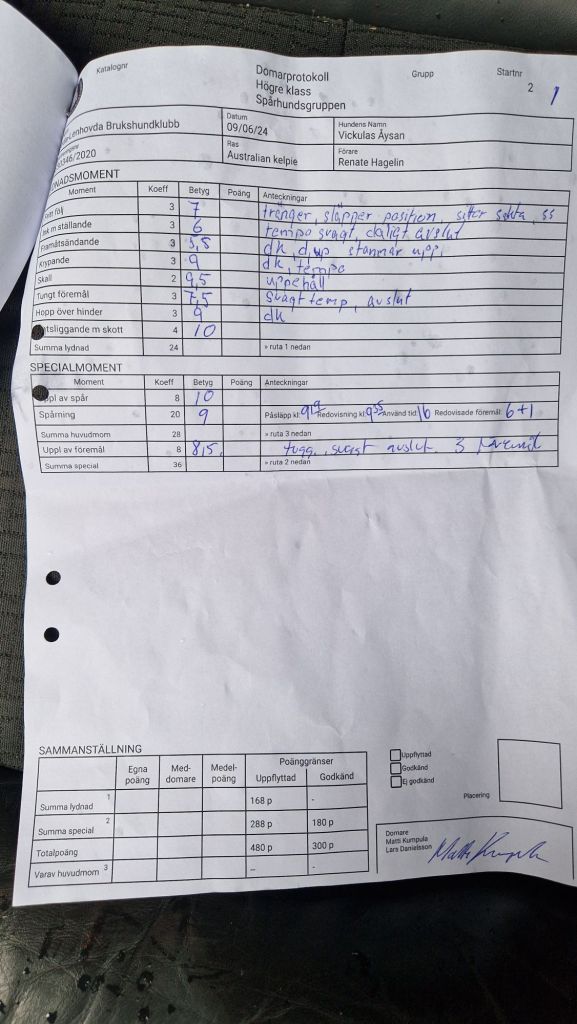 Katalognr
Domarprotokoll
Högre klass
Spårhundsgruppen
Grupp
Startnr
2 1
Lenhovda Brukshundklubb
Datum
09/06/24
Hundens Namn
Vickulas Åysan
00346/2020
Ras
Australian kelpie
Förare
Renate Hagelin
LYDNADSMOMENT
Moment Koeff Betyg Poäng Anteckningar
Fritt följ 3 7 tränger, släpper position, sitter sakta, ss
Ink m ställande 3 6 tempo svagt, dåligt avslut
Framåtsändande 3 5,5 dk, d,up stannar upp.
Krypande 3 9 dk, tempo
Skall 2 9,5 uppehåll
Tungt föremål 3 7,5 svagt temp, avslut
Hopp över hinder 3 9 dk
tsliggande m skott 4 10
Summa lydnad 24 » ruta 1 nedan
SPECIALMOMENT
Moment Koeff Betyg Poäng Anteckningar
ppl av spår 8 10
Spårning 20 9 Påsläpp kl: 9 19 Redovisning kl: 9 35 Använd tid: 16 Redovisade föremål: 6+1
Summa huvudmom 28 » ruta 3 nedan
Uppl av föremål 8 8,5. tugg, svagt avslut. 3 föremål
Summa special 36 » ruta 2 nedan
SAMMANSTÄLLNING
Egna poäng Med-domare Medel-poäng Poänggränser
Uppflyttad Godkänd
Summa lydnad 1 168 p -
Summa special 2 288 p 180 p
Totalpoäng 480 p 300 p
Varav huvudmom 3 – -
Uppflyttad
Godkänd
Ej godkänd
Placering
Domare
Matti Kumpula
Lars Danielsson
Matti Kumpula